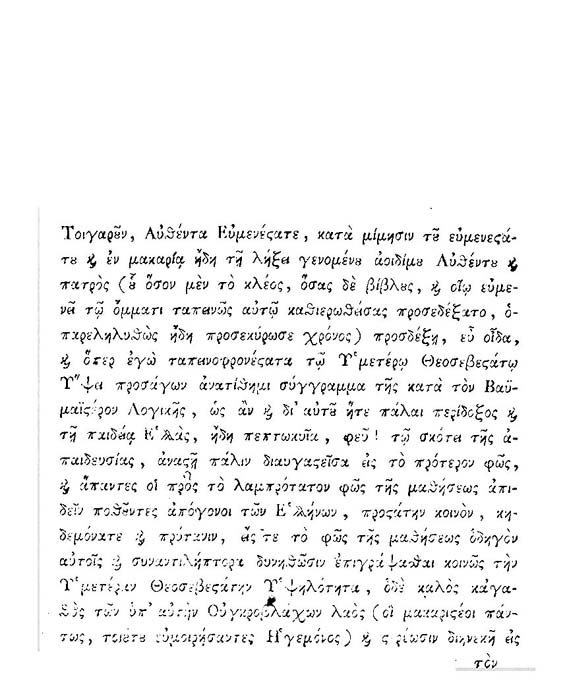 Τοιγαρȣ͂ν, Αὐθέντα Εὐμενέϛατε, κατὰ μίμησιν τȣ͂ εὐμενεϛά-
τȣ ϗ ἐν μακαρίᾳ ἤδη τῇ λήξει γενομένȣ ἀοιδίμȣ Αὐθέντȣ ϗ
πατρὸς (ȣ̔͂ ὅσον μὲν τὸ κλέος, ὅσας δὲ βίβλȣς, ϗ οἵῳ εὐμε-
νεῖ τῷ ὄμματι ταπεινῶς αὐτῷ καθιερωθείσας προσεδέξατο, ὁ
παρεληλυθὼς ἤδη προσεκύρωσε χρόνος) προσδέξῃ, εὖ οἶδα,
ϗ ὅπερ ἐγὼ ταπεινοφρονέϛατα τῷ Ὑμετέρῳ Θεοσεβεϛάτῳ
Ὕψει προσάγων ἀνατίθημι σύγγραμμα τῆς κατὰ τὸν Βαϋ-
μαϊϛέρον Λογικῆς, ὡς ἂν ϗ δι' αὐτȣ͂ ἥτε πάλαι περίδοξος ϗ
τῇ παιδείᾳ Ἑλλὰς, ἤδη πεπτωκυῖα, φεῦ! τῷ σκότει τῆς ἀ-
παιδευσίας, ἀναϛῇ πάλιν διαυγαϛεῖσα εἰς τὸ πρότερον φῶς,
ϗ ἅπαντες οἱ πρὸς τὸ λαμπρότατον φῶς τῆς μαθήσεως ἀπι-
δεῖν ποθȣ͂ντες ἀπόγονοι τῶν Ἑλλήνων, προϛάτην κοινὸν, κη-
δεμόνατε ϗ πρύτανιν, εἴς τε τὸ φῶς τῆς μαθήσεως ὁδηγὸν
αὐτοῖς ϗ συναντιλήπτορα δυνηθῶσιν ἐπιγράψασθαι κοινῶς τὴν
Ὑμετέραν Θεοσεβεϛάτην Ὑψηλότητα, ὅδε καλὸς κἀγα-
θὸς τῶν ὑπ' αὐτὴν Οὐγκροβλάχων λαὸς (οἱ μακαριϛέοι πάν-
τως, τοιȣ́τȣ εὐμοιρήσαντες Ἡγεμόνος) ϗ διηνεκῆ εἰς
τὸν